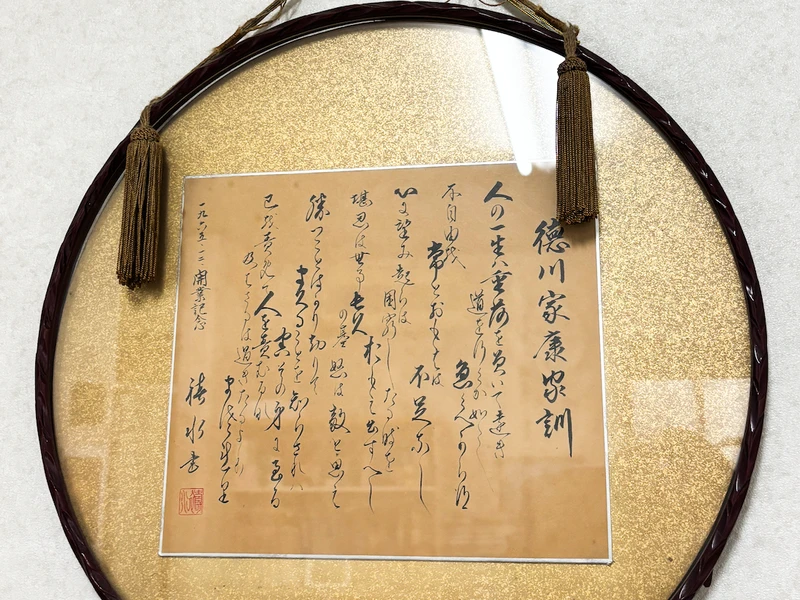 徳川家康家訓
人の一生ハ重荷を負いて遠き
道を行くか如し
急くへからす
不自由を
常とおもへは
不足なし
心に望み起らは
困窮したる時を
おもひ出すへし
堪忍は無事長久
の基 怒は敵と思え
勝つことはかり知りて
負くることを知らされハ
害その身に至る
己を責めて
人を責むるな
及はさるは過きたるより
まされり
一九六五・一二 開業記念
水書